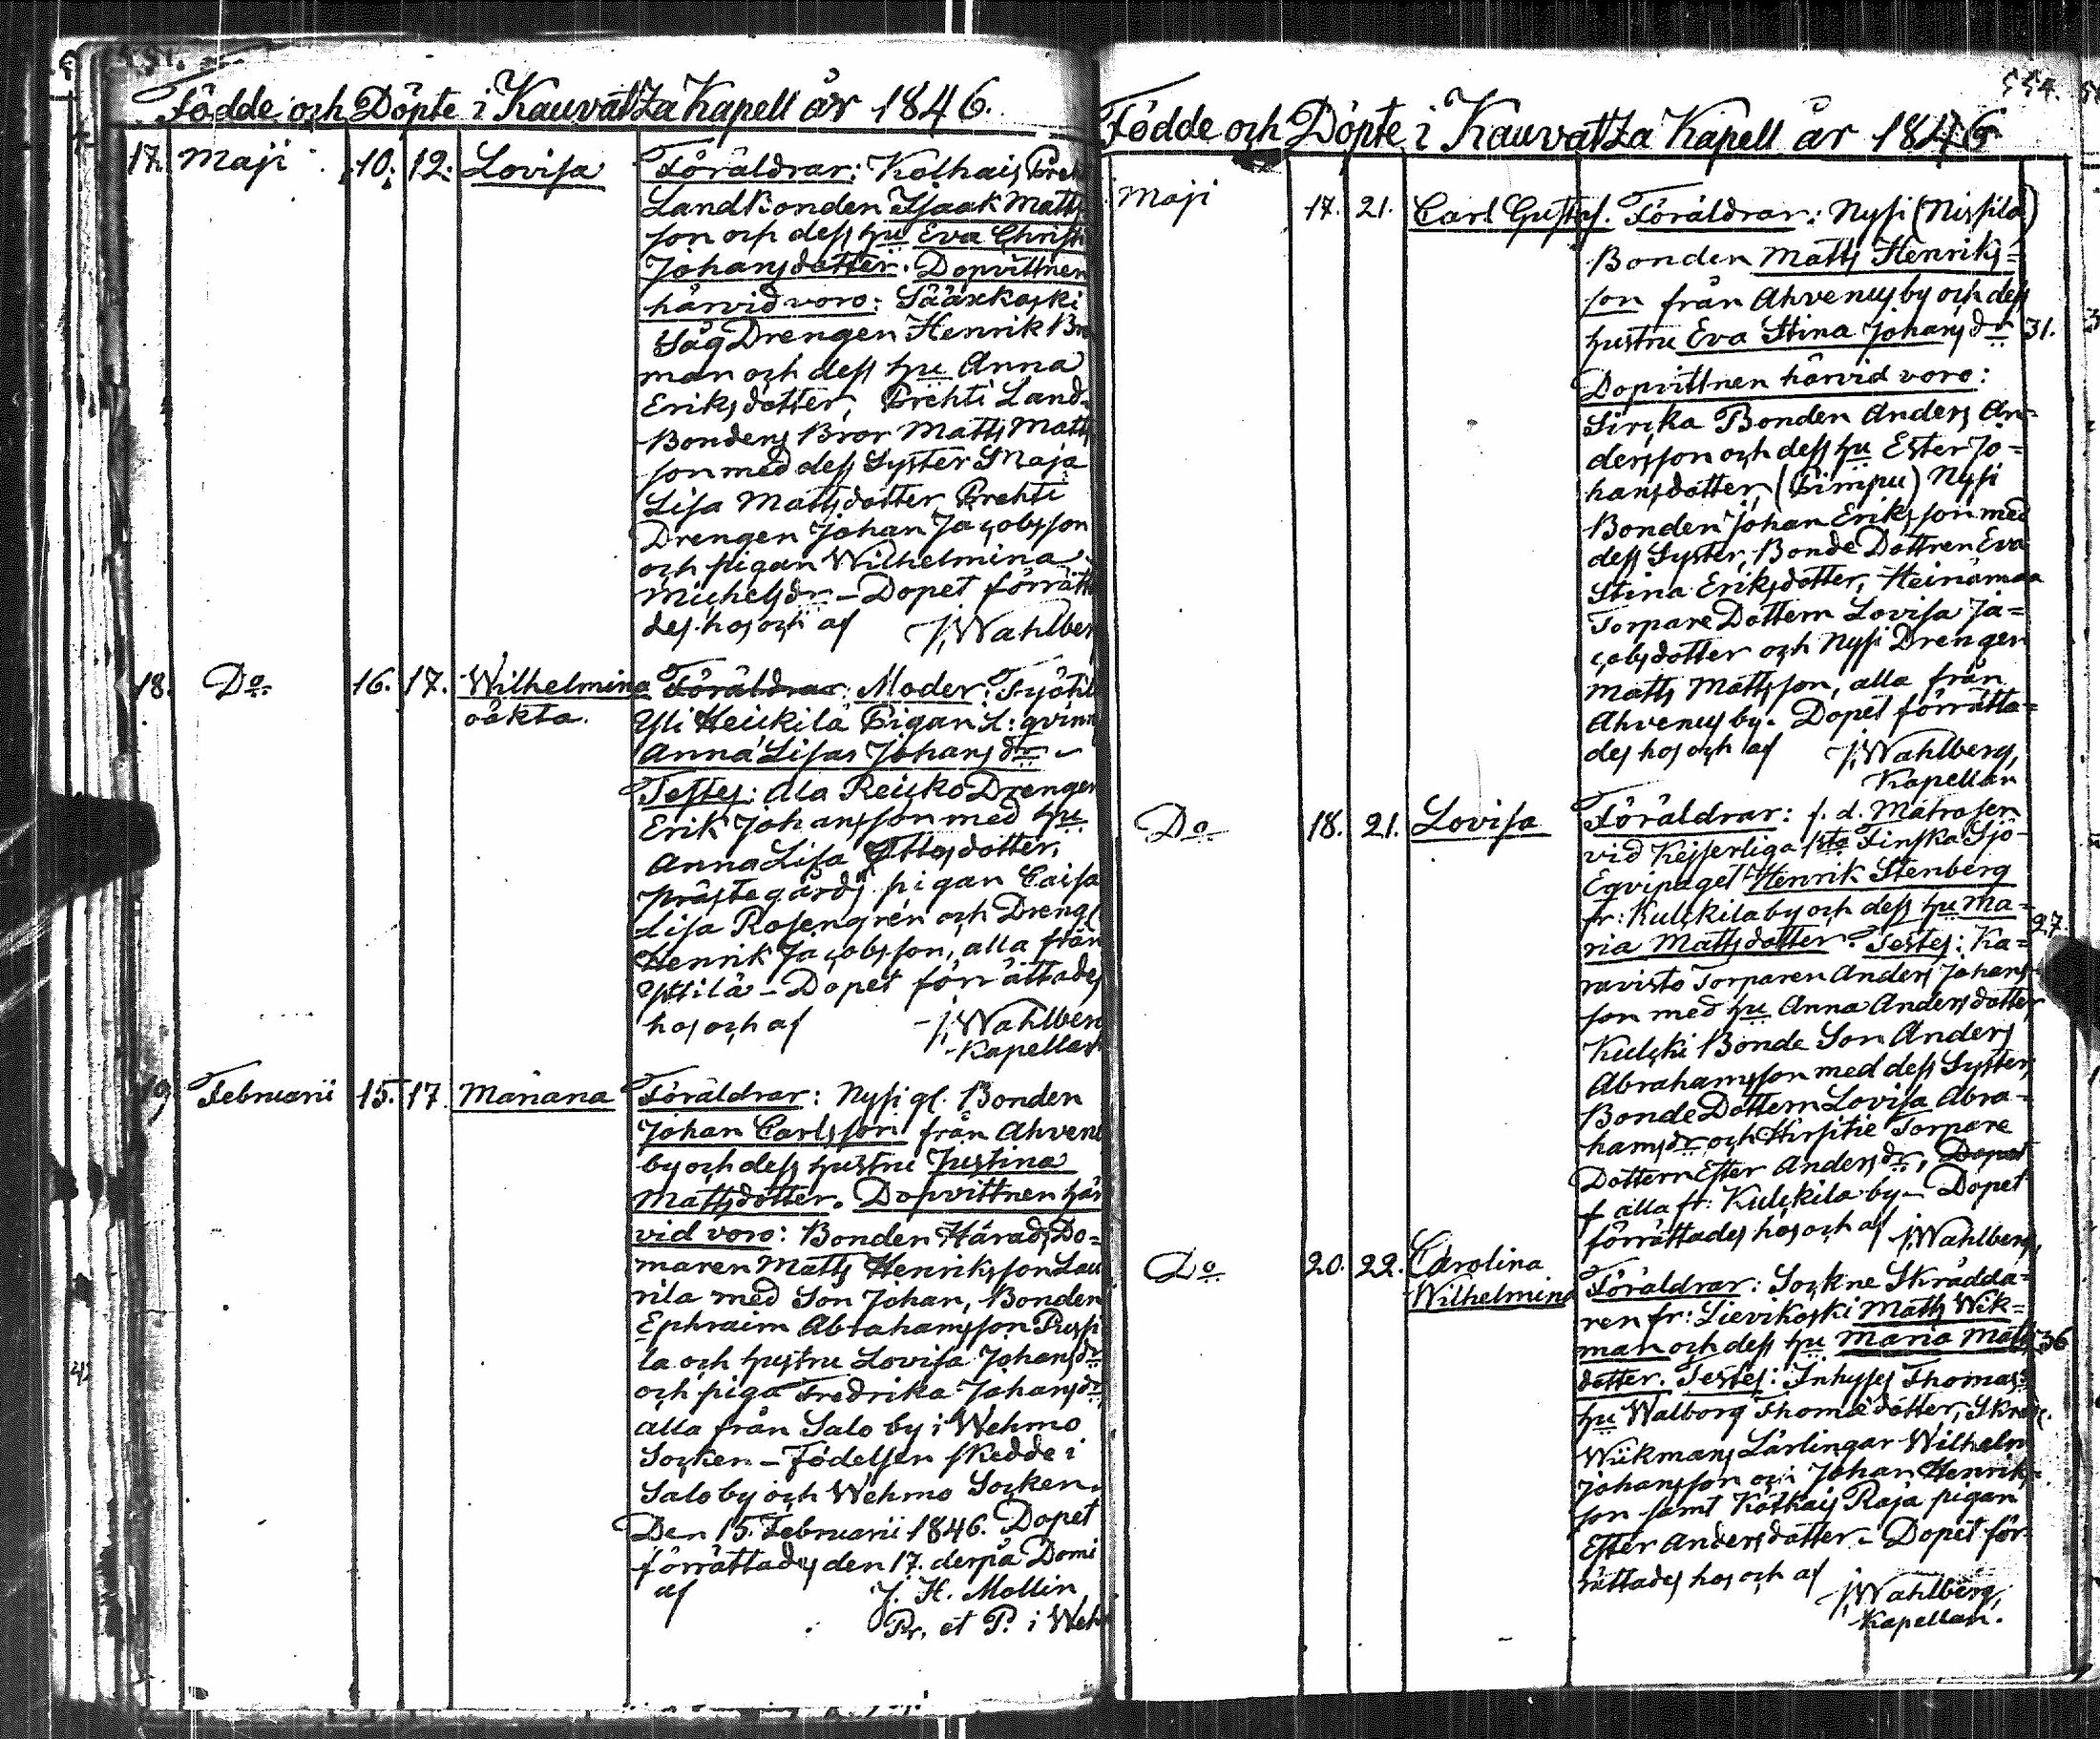 551.
Födde och Döpte i Kauvatza Kapell år 1846.
17. Maji 10. 12. Lovisa Föräldrar: Kolhais Preh
Landbonden Isaak Matts
son och dess hu Eva Christi
Johansdotter. Dopvittnen
härvid voro: Sääxkoski
Såg Drengen Henrik Br
man och dess hu Anna
Eriksdotter, Prehti Land-
Bondens Bror Matts Matts
son med dess Syster Maja
Lisa Mattsdotter, Prehti
Drengen Johan Jacobsson
och pigan Wilhelmina
Michelsdr – Dopet förrätta
des hos och af J. Wahlber
18. Do 16. 17. Wilhelmina Föräldrar: Moder:
oäkta. Yli Heickilä Pigan L: qvinn
Anna Lisas Johansdr
Testes: Ala Reicko Drengen
Erik Johansson med hu
Anna Lisa Ottosdotter,
prästegårds pigan Caisa
Lisa Rosengrén och Dreng
Henrik Jacobsson, alla från
Yttilä – Dopet förrättades
hos och af J. Wahlberg
Kapellan
19 Februarii 15. 17. Mariana Föräldrar: Nysi gl. Bonden
Johan Carlsson från Ahvenu
by och dess hustru Justina
Mattsdotter. Dopvittnen här
vid voro: Bonden Härads Do=
maren Matts Henriksson Lau
rila med Son Johan, Bonden
Ephraim Abrahamsson Pussi
la och hustru Lovisa Johansdr
och piga Fredrika Johansdr
alla från Salo by i Wehmo
Socken – Födelsen skedde i
Salo by och Wehmo Socken
Den 15. Februarii 1846. Dopet
förrättades den 17. derpå Domi
af J. H. Mollin
Pr. et P. i Weh
554.
Födde och Döpte i Kauvatza Kapell år 1846
Maji 17. 21. Carl Gustaf. Föräldrar: Nysi (Nissilä)
Bonden Matts Henriks=
son från Ahvenus by och dess
hustru Eva Stina Johansdr 31.
Dopvittnen härvid voro:
Sirska Bonden Anders An=
dersson och dess hu Ester Jo=
hansdotter, (Pimpu) Nysi
Bonden Johan Eriksson med
dess Syster, Bonde Dottren Eva
Stina Eriksdotter, Heinämaa
Torpare Dottern Lovisa Ja=
cobsdotter och Nysi Drengen
Matts Mattsson, alla från
Ahvenus by. Dopet förrätta=
des hos och af J. Wahlberg,
Kapellan
Do 18. 21. Lovisa Föräldrar: f. d. Matrosen
vid Kejserliga 1sta Finska Sjö-
Eqvipaget Henrik Stenberg
fr: Kulckila by och dess hu Ma=
ria Mattsdotter. Testes: Ka= 27.
ravisto Torparen Anders Johans-
son med hu Anna Andersdotter
Kulcki Bonde Son Anders
Abrahamsson med dess Syster,
Bonde Dottern Lovisa Abra=
hamsdr och Hirsitie Torpare
Dottern Ester Andersdr, Dopet
alla fr: Kulckila by – Dopet
förrättades hos och af J. Wahlberg,
Do 20. 22. Carolina
Wilhelmina Föräldrar: Sockne Skrädda=
ren fr: Lievikoski Matts Wik=
man och dess hu Maria Matts 36
dotter. Testes: Inhyses Thomas
hu Walborg Thomædotter, Skrr
Wikmans Lärlingar Wilhelm
Johansson och Johan Henriks
son samt Kolkais Raja pigan
Ester Andersdotter – Dopet för
rättades hos och af J. Wahlberg,
Kapellan.